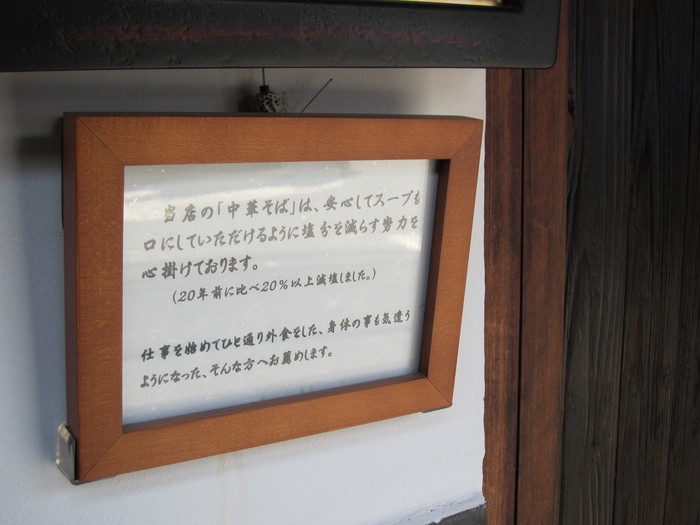 当店の「中華そば」は、安心してスープも
口にしていただけるように塩分を減らす努力を
心掛けております。
（20年前に比べ20％以上減塩しました。）
仕事を始めてひと通り外食をした、身体の事も気遣う
ようになった、そんな方へお薦めします。